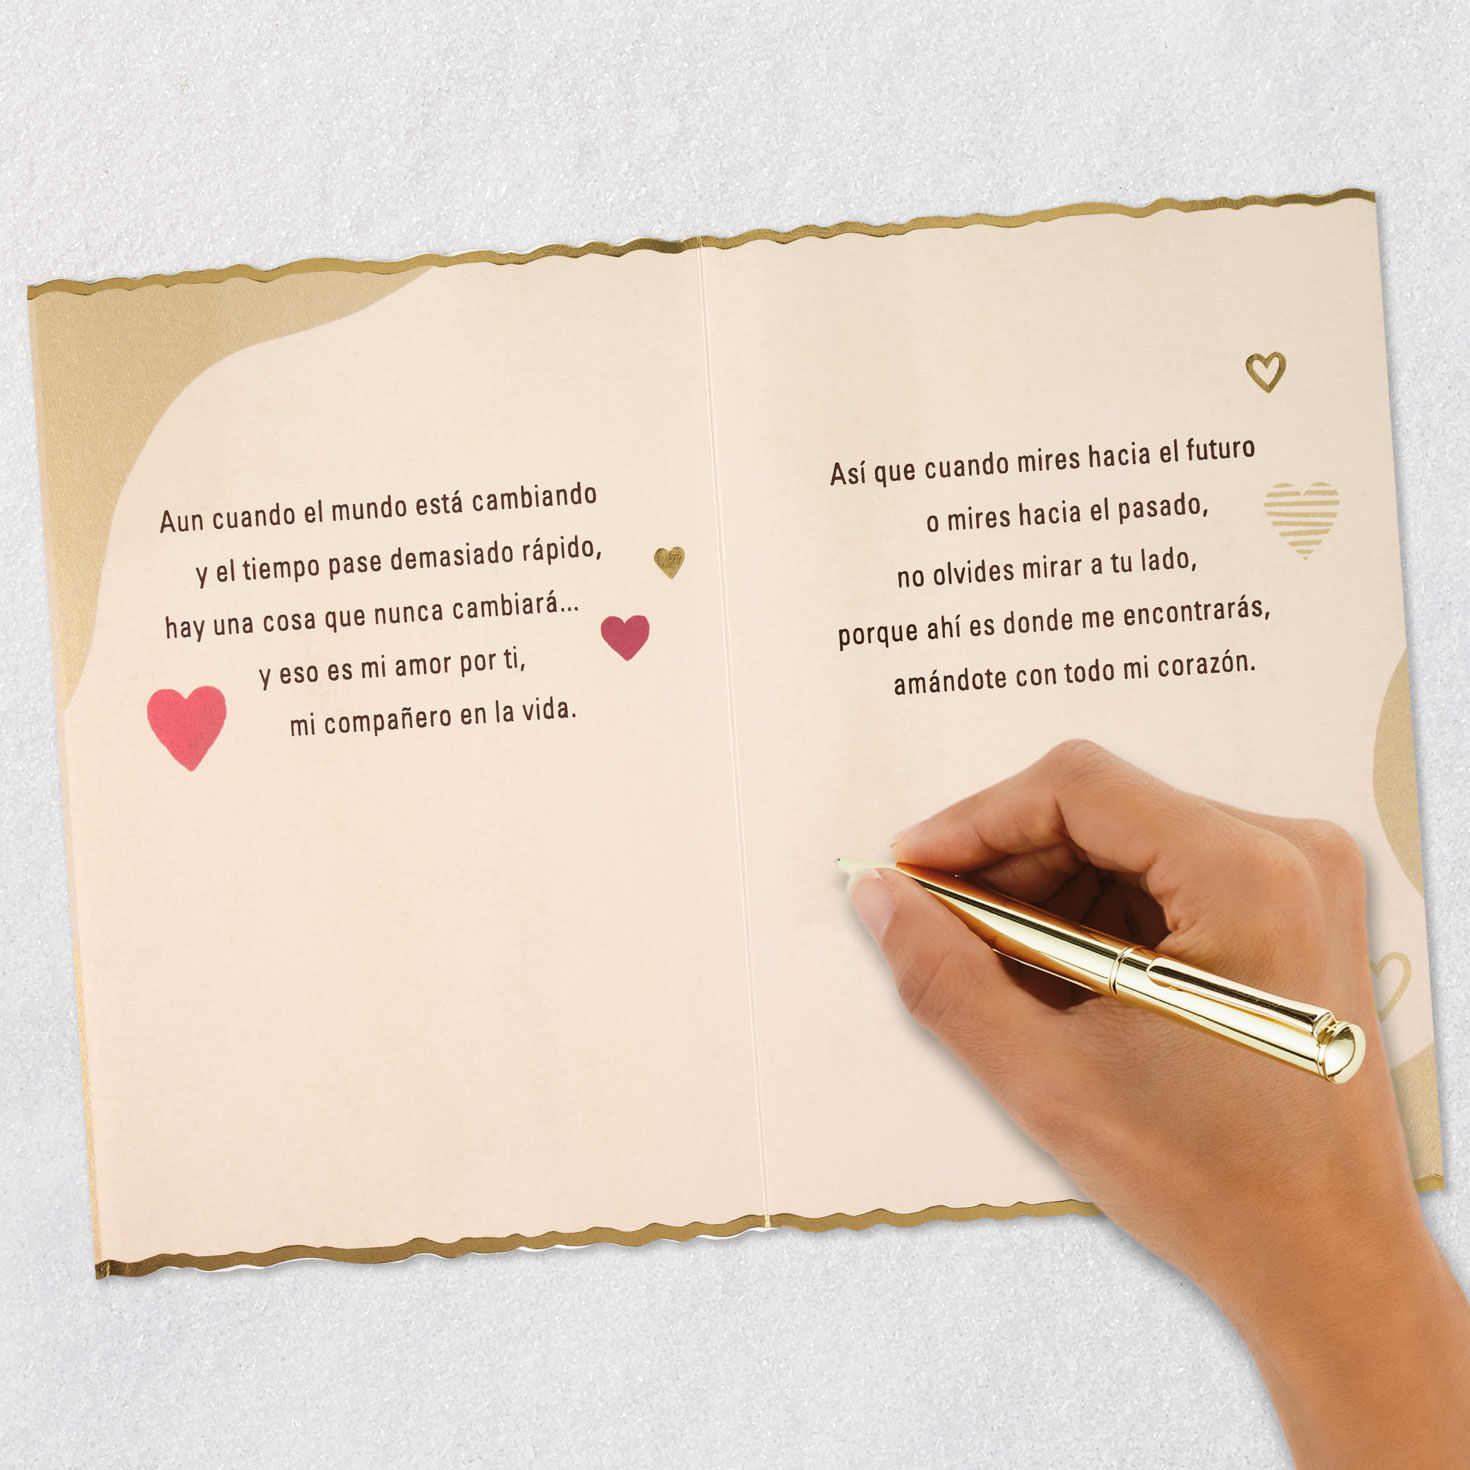 Aun cuando el mundo está cambiando
y el tiempo pase demasiado rápido,
hay una cosa que nunca cambiará...
y eso es mi amor por ti,
mi compañero en la vida.
Así que cuando mires hacia el futuro
o mires hacia el pasado,
no olvides mirar a tu lado,
porque ahí es donde me encontrarás,
amándote con todo mi corazón.